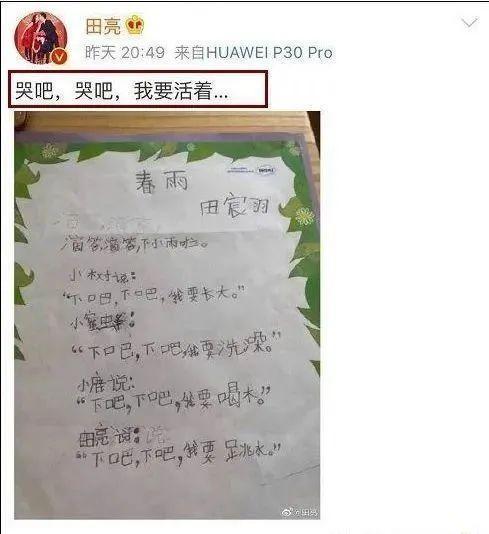 田亮
昨天 20:49 来自HUAWEI P30 Pro
哭吧，哭吧，我要活着...
春雨
田宸羽
滴答，滴答，下小雨啦。
小树说：
“下吧，下吧，我要长大。”
“下吧，下吧，我要洗澡。”
“下吧，下吧，我要喝水。”
田亮说：
“下吧，下吧，我要跳水。”
@田亮